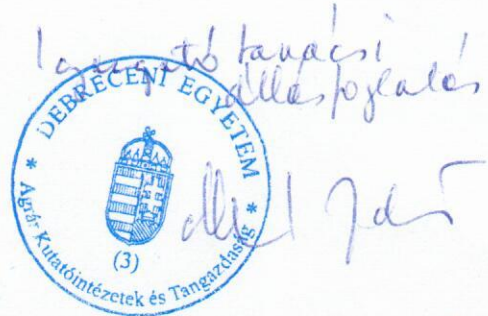 Igazgató tanácsi
állásfoglalás
DEBRECENI EGYETEM
* Agrár Kutatóintézetek és Tangazdaság *
(3)